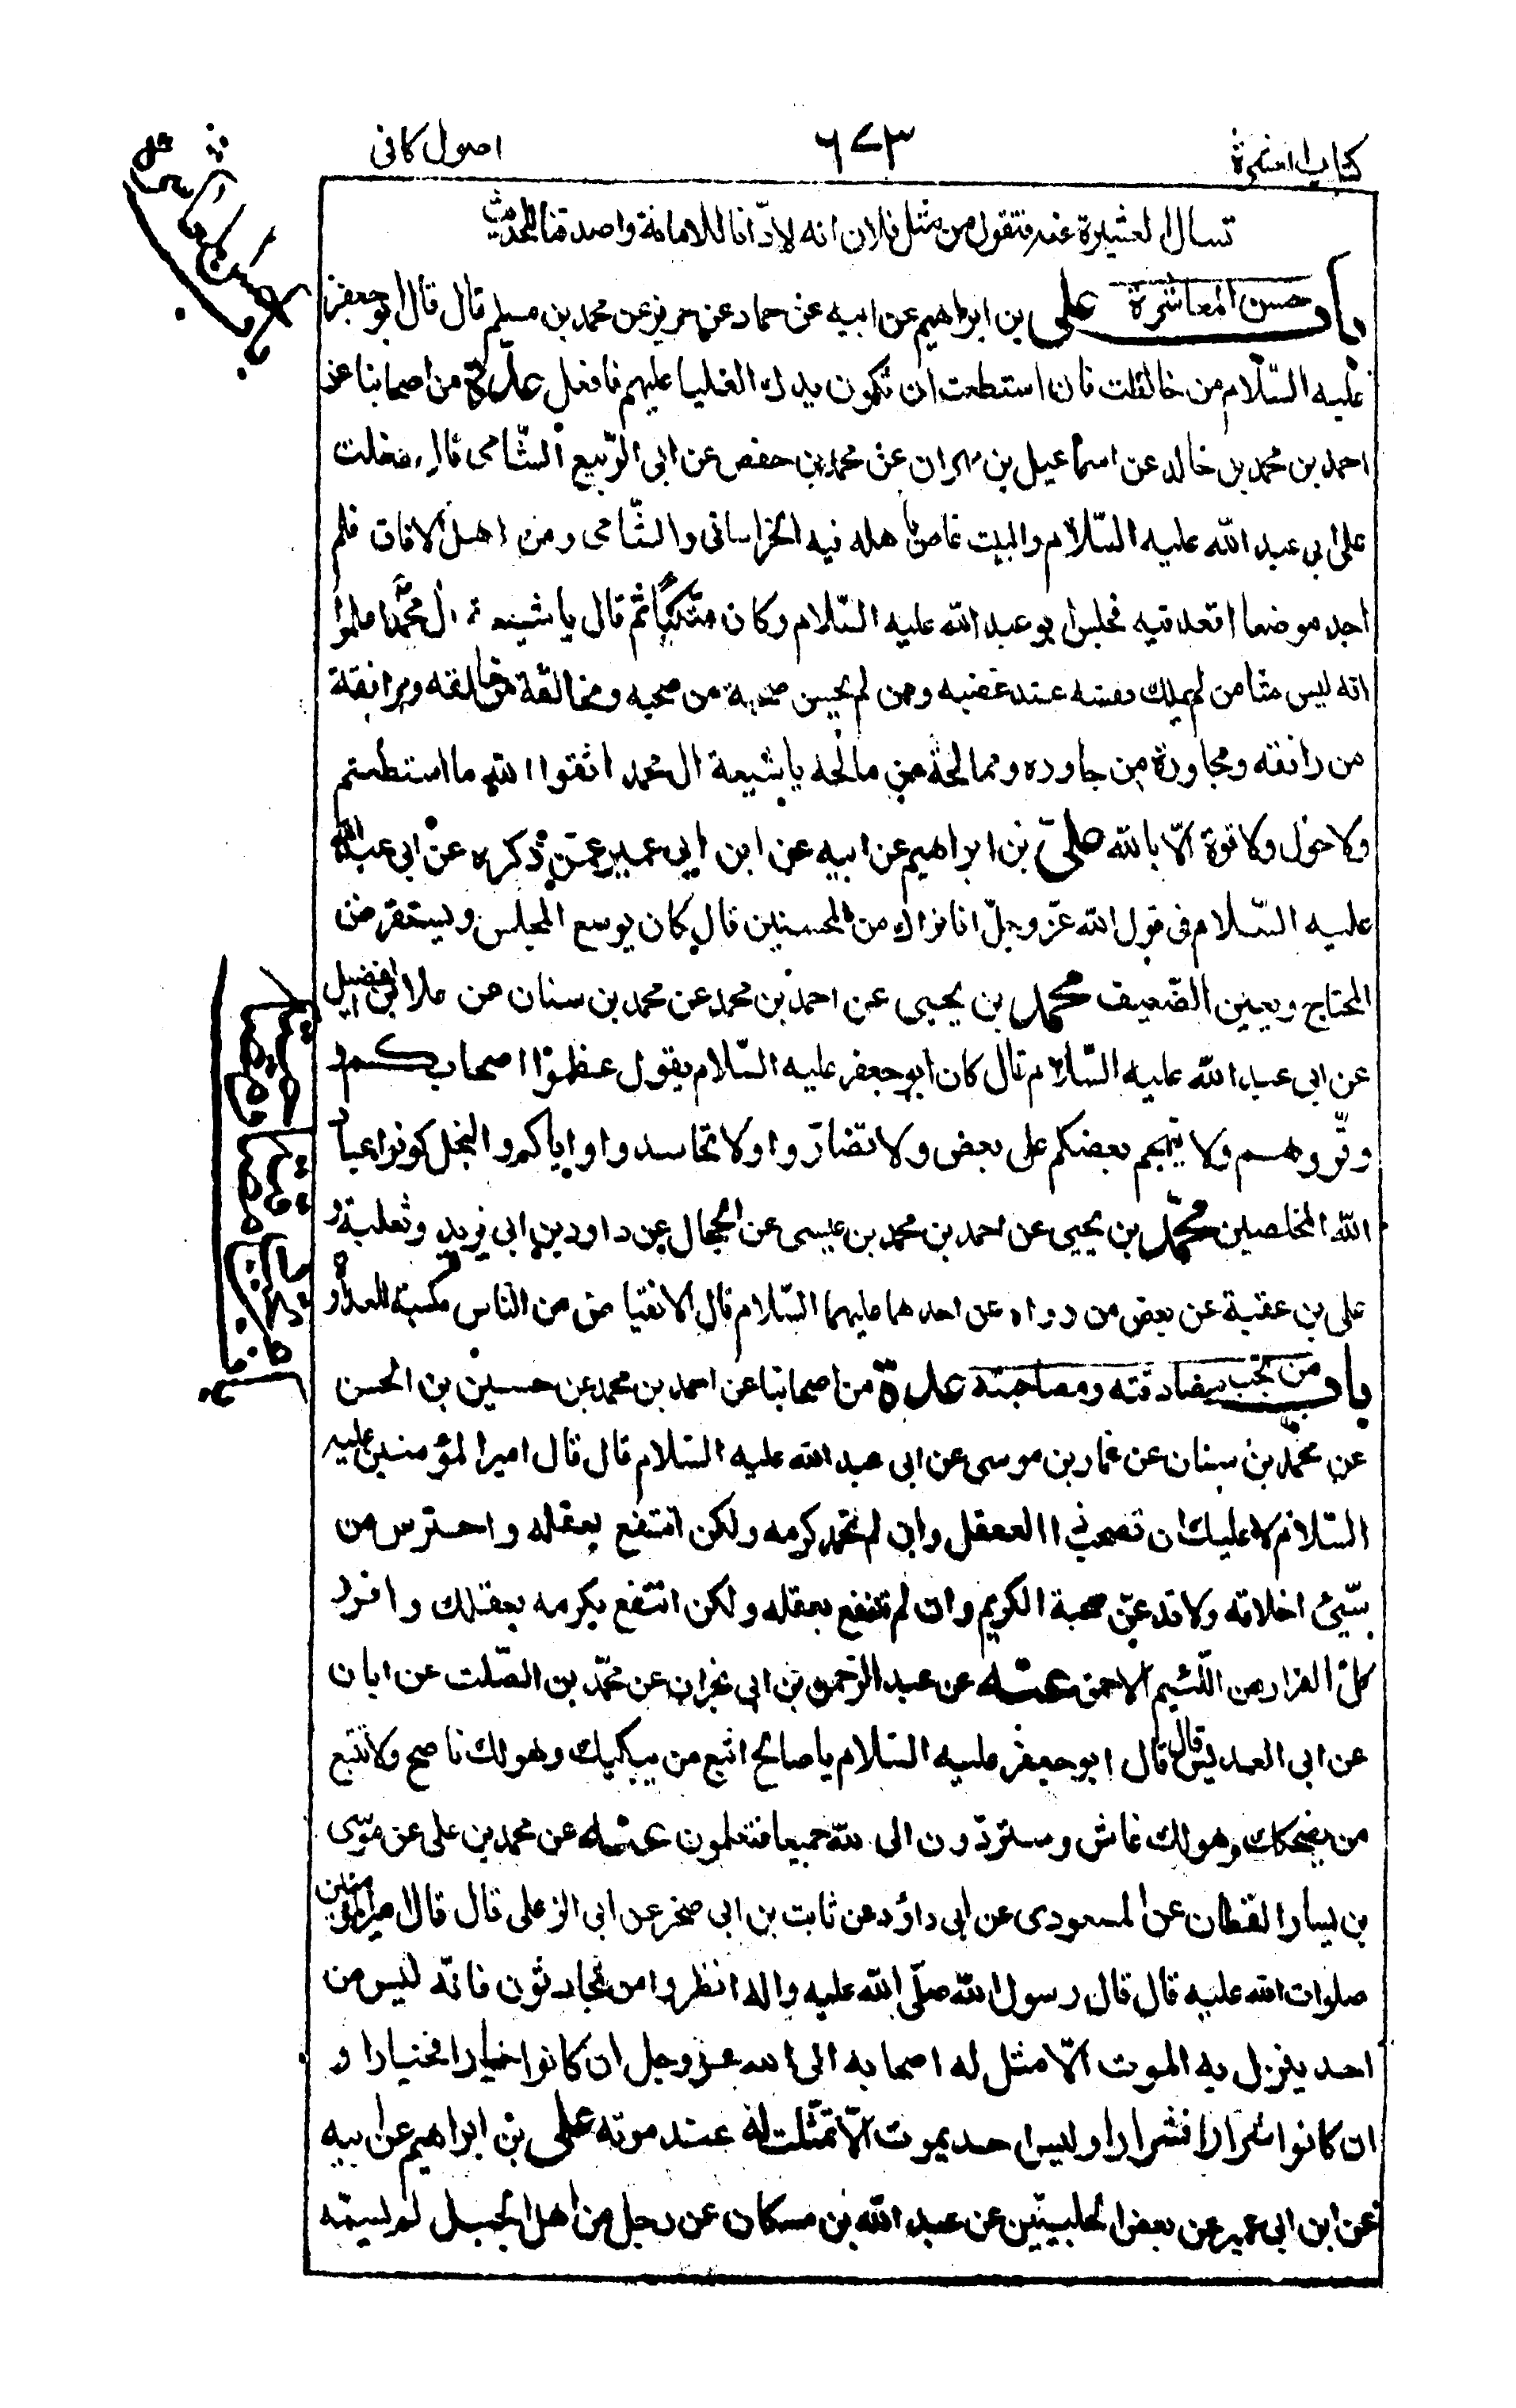 كتاب العشرة
٦٧٣
اصول كافى
تسال العشيرة عنه فتقول من مثل فلان انه لادّانا للامانة واصدقنا للحديث
باب حسن المعاشرة على بن ابراهيم عن ابيه عن حماد عن حريز عن محمد بن مسلم قال قال ابو جعفر
عليه السّلام من خالطت فان استطعت ان تكون يدك العليا عليهم فافعل عدة من اصحابنا عن
احمد بن محمد بن خالد عن اسماعيل بن مهران عن محمد بن حفص عن ابى الرّبيع الشّامى قال دخلت
على ابى عبد الله عليه السّلام والبيت غاص باهله فيه الخراسانى والشّامى ومن اهل الافاق فلم
اجد موضعا اقعد فيه فجلس ابو عبد الله عليه السّلام وكان متّكئا ثم قال يا شيعة ال محمّد اعلموا
انه ليس منّا من لم يملك نفسه عند غضبه ومن لم يحسن صحبة من صحبه ومخالقة من خالقه ومرافقة
من رافقه ومجاورة من جاوره وممالحة من مالحه يا شيعة ال محمد اتقوا الله ما استطعتم
ولا حول ولا قوة الّا بالله على بن ابراهيم عن ابيه عن ابن ابى عمير عمّن ذكره عن ابى عبد الله
عليه السّلام فى قول الله عزّ وجلّ انا نراك من المحسنين قال كان يوسع المجلس ويستقرض
المحتاج ويعين الضّعيف محمد بن يحيى عن احمد بن محمد عن محمد بن سنان عن علا بن الفضيل
عن ابى عبد الله عليه السّلام قال كان ابو جعفر عليه السّلام يقول عظموا اصحابكم و
وقّروهم ولا يتهجم بعضكم على بعض ولا تضارّوا ولا تحاسدوا واياكم والبخل كونوا عباد
الله المخلصين محمّد بن يحيى عن احمد بن محمد بن عيسى عن الحجال عن داود بن ابى يزيد وثعلبة و
على بن عقبة عن بعض من رواه عن احدهما عليهما السّلام قال الانقباض من الناس مكسبة للعداوة
باب من يجب مصادقته ومصاحبته عدة من اصحابنا عن احمد بن محمد عن حسين بن الحسن
عن محمّد بن سنان عن عمار بن موسى عن ابى عبد الله عليه السّلام قال قال امير المؤمنين عليه
السّلام لا عليك ان تصحب ذا العقل وان لم تحمد كرمه ولكن انتفع بعقله واحترس من
سّيئ اخلاقه ولا تدعنّ صحبة الكريم وان لم تنتفع بعقله ولكن انتفع بكرمه بعقلك وافرر
كلّ الفرار من اللّئيم الاحمق عنه عن عبد الرّحمن بن ابى نجران عن محمّد بن الصّلت عن ابان
عن ابى العديس قال قال ابو جعفر عليه السّلام يا صالح اتبع من يبكيك وهو لك ناصح ولا تتبع
من يضحكك وهو لك غاش وستردّون الى الله جميعا فتعلمون عنه عن محمد بن على عن موسى
بن يسار القطان عن المسعودى عن ابى داؤد عن ثابت بن ابى صخر عن ابى الزعلى قال قال امير المؤمنين
صلوات الله عليه قال قال رسول الله صلّى الله عليه واله انظروا من تحادثون فانّه ليس من
احد ينزل به الموت الّا مثل له اصحابه الى الله عزوجل ان كانوا خيارا فخيارا و
ان كانوا شرارا فشرارا وليس احد يموت الّا تمثّلت له عند موته على بن ابراهيم عن ابيه
عن ابن ابى عمير عن بعض الحلبيّين عن عبد الله بن مسكان عن رجل من اهل الجبل لم يسمّه
باب حسن المعاشرة